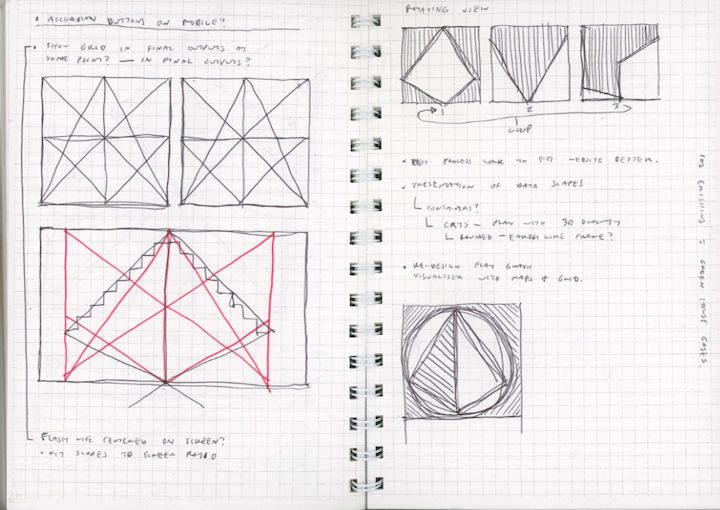 • ACCORDIAN BUTTONS ON MOBILE?
• SHOW GRID IN FINAL OUTPUTS AT
SOME POINT? — IN FINAL OUTPUTS?
FLASH LIFE CENTERED ON SCREEN?
• FIT SHAPES TO SCREEN RATIO
ROTATING VIEW
1 2 3
LOOP
• PROCESS WORK TO FIT BETTER.
• PRESENTATION OF DATA SCAPES
CONTAINERS?
CRTS — PLAY WITH 3D QUALITY
ROUNDED — EARTH LIKE FRAME?
• RE-DESIGN FLAG GRAPH
VISUALISER WITH MAPS & GRID.
CO2 EMISSIONS = GREEN HOUSE GASES